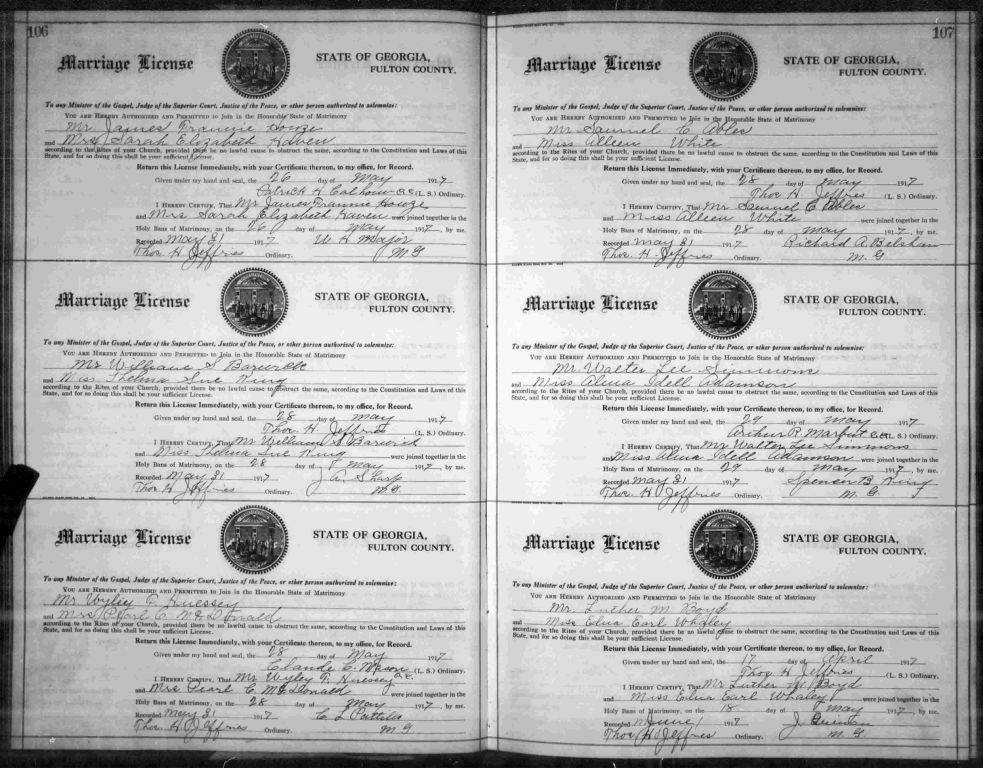 106
Marriage License
STATE OF GEORGIA,
FULTON COUNTY.
To any Minister of the Gospel, Judge of the Superior Court, Justice of the Peace, or other person authorized to solemnize:
YOU ARE HEREBY AUTHORIZED AND PERMITTED to Join in the Honorable State of Matrimony
Mr James Frannie Houze
and Mrs Sarah Elizabeth Haven
according to the Rites of your Church, provided there be no lawful cause to obstruct the same, according to the Constitution and Laws of this
State, and for so doing this shall be your sufficient License.
Return this License Immediately, with your Certificate thereon, to my office, for Record.
Given under my hand and seal, the 26 day of May 1917
Patrick H Calhoun C.C. (L. S.) Ordinary.
I HEREBY CERTIFY, That Mr James Frannie Houze
and Mrs Sarah Elizabeth Haven were joined together in the
Holy Bans of Matrimony, on the 26 day of May 1917, by me.
Recorded May 31 1917 W H Major
Thos. H Jeffries Ordinary. M G
Marriage License
STATE OF GEORGIA,
FULTON COUNTY.
To any Minister of the Gospel, Judge of the Superior Court, Justice of the Peace, or other person authorized to solemnize:
YOU ARE HEREBY AUTHORIZED AND PERMITTED to Join in the Honorable State of Matrimony
Mr William S Barwick
and Miss Thelma Sue King
according to the Rites of your Church, provided there be no lawful cause to obstruct the same, according to the Constitution and Laws of this
State, and for so doing this shall be your sufficient License.
Return this License Immediately, with your Certificate thereon, to my office, for Record.
Given under my hand and seal, the 28 day of May 1917
Thos. H Jeffries (L. S.) Ordinary.
I HEREBY CERTIFY, That Mr William S Barwick
and Miss Thelma Sue King were joined together in the
Holy Bans of Matrimony, on the 28 day of May 1917, by me.
Recorded May 31 1917 J A Sharp
Thos H Jeffries Ordinary. M G
Marriage License
STATE OF GEORGIA,
FULTON COUNTY.
To any Minister of the Gospel, Judge of the Superior Court, Justice of the Peace, or other person authorized to solemnize:
YOU ARE HEREBY AUTHORIZED AND PERMITTED to Join in the Honorable State of Matrimony
Mr Wyley F Huessey
and Mrs Pearl C. McDonald
according to the Rites of your Church, provided there be no lawful cause to obstruct the same, according to the Constitution and Laws of this
State, and for so doing this shall be your sufficient License.
Return this License Immediately, with your Certificate thereon, to my office, for Record.
Given under my hand and seal, the 28 day of May 1917
Claude C. Mason C.C. (L. S.) Ordinary.
I HEREBY CERTIFY, That Mr Wyley F. Huessey
and Mrs Pearl C. McDonald were joined together in the
Holy Bans of Matrimony, on the 28 day of May 1917, by me.
Recorded May 31 1917 C L
Thos H Jeffries Ordinary. M G
107
Marriage License
STATE OF GEORGIA,
FULTON COUNTY.
To any Minister of the Gospel, Judge of the Superior Court, Justice of the Peace, or other person authorized to solemnize:
YOU ARE HEREBY AUTHORIZED AND PERMITTED to Join in the Honorable State of Matrimony
Mr Samuel C Ables
and Miss Alleen White
according to the Rites of your Church, provided there be no lawful cause to obstruct the same, according to the Constitution and Laws of this
State, and for so doing this shall be your sufficient License.
Return this License Immediately, with your Certificate thereon, to my office, for Record.
Given under my hand and seal, the 28 day of May 1917
Thos H Jeffries (L. S.) Ordinary.
I HEREBY CERTIFY, That Mr Samuel C Ables
and Miss Alleen White were joined together in the
Holy Bans of Matrimony, on the 28 day of May 1917, by me.
Recorded May 31 1917 Richard A. Belsham
Thos. H. Jeffries Ordinary. M. G
Marriage License
STATE OF GEORGIA,
FULTON COUNTY.
To any Minister of the Gospel, Judge of the Superior Court, Justice of the Peace, or other person authorized to solemnize:
YOU ARE HEREBY AUTHORIZED AND PERMITTED to Join in the Honorable State of Matrimony
Mr. Walter Lee Simmons
and Miss Alma Idell Adamson
according to the Rites of your Church, provided there be no lawful cause to obstruct the same, according to the Constitution and Laws of this
State, and for so doing this shall be your sufficient License.
Return this License Immediately, with your Certificate thereon, to my office, for Record.
Given under my hand and seal, the 29 day of May 1917
Arthur R. Marbut C.C. (L. S.) Ordinary.
I HEREBY CERTIFY, That Mr Walter Lee Simmons
and Miss Alma Idell Adamson were joined together in the
Holy Bans of Matrimony, on the 29 day of May 1917, by me.
Recorded May 31 1917 Spencer B King
Thos. H. Jeffries Ordinary. M. G.
Marriage License
STATE OF GEORGIA,
FULTON COUNTY.
To any Minister of the Gospel, Judge of the Superior Court, Justice of the Peace, or other person authorized to solemnize:
YOU ARE HEREBY AUTHORIZED AND PERMITTED to Join in the Honorable State of Matrimony
Mr. Luther M Boyd
and Miss Edna Earl Whaley
according to the Rites of your Church, provided there be no lawful cause to obstruct the same, according to the Constitution and Laws of this
State, and for so doing this shall be your sufficient License.
Return this License Immediately, with your Certificate thereon, to my office, for Record.
Given under my hand and seal, the 17 day of April 1917
Thos H Jeffries (L. S.) Ordinary.
I HEREBY CERTIFY, That Mr Luther M Boyd
and Miss Edna Earl Whaley were joined together in the
Holy Bans of Matrimony, on the 18 day of May 1917, by me.
Recorded June 1 1917 J
Thos H Jeffries Ordinary. M. G.